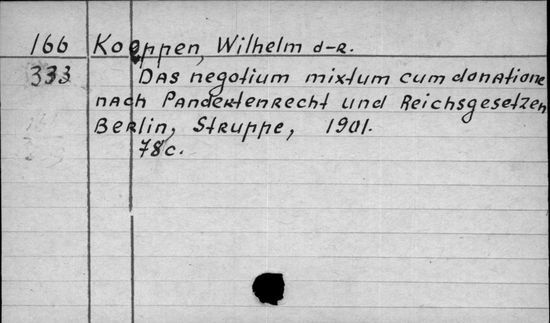 166 Koeppen, Wilhelm d-r.
333 Das negotium mixtum cum donatione
nach Pandektenrecht und Reichsgesetzen
Berlin, Struppe, 1901.
78c.